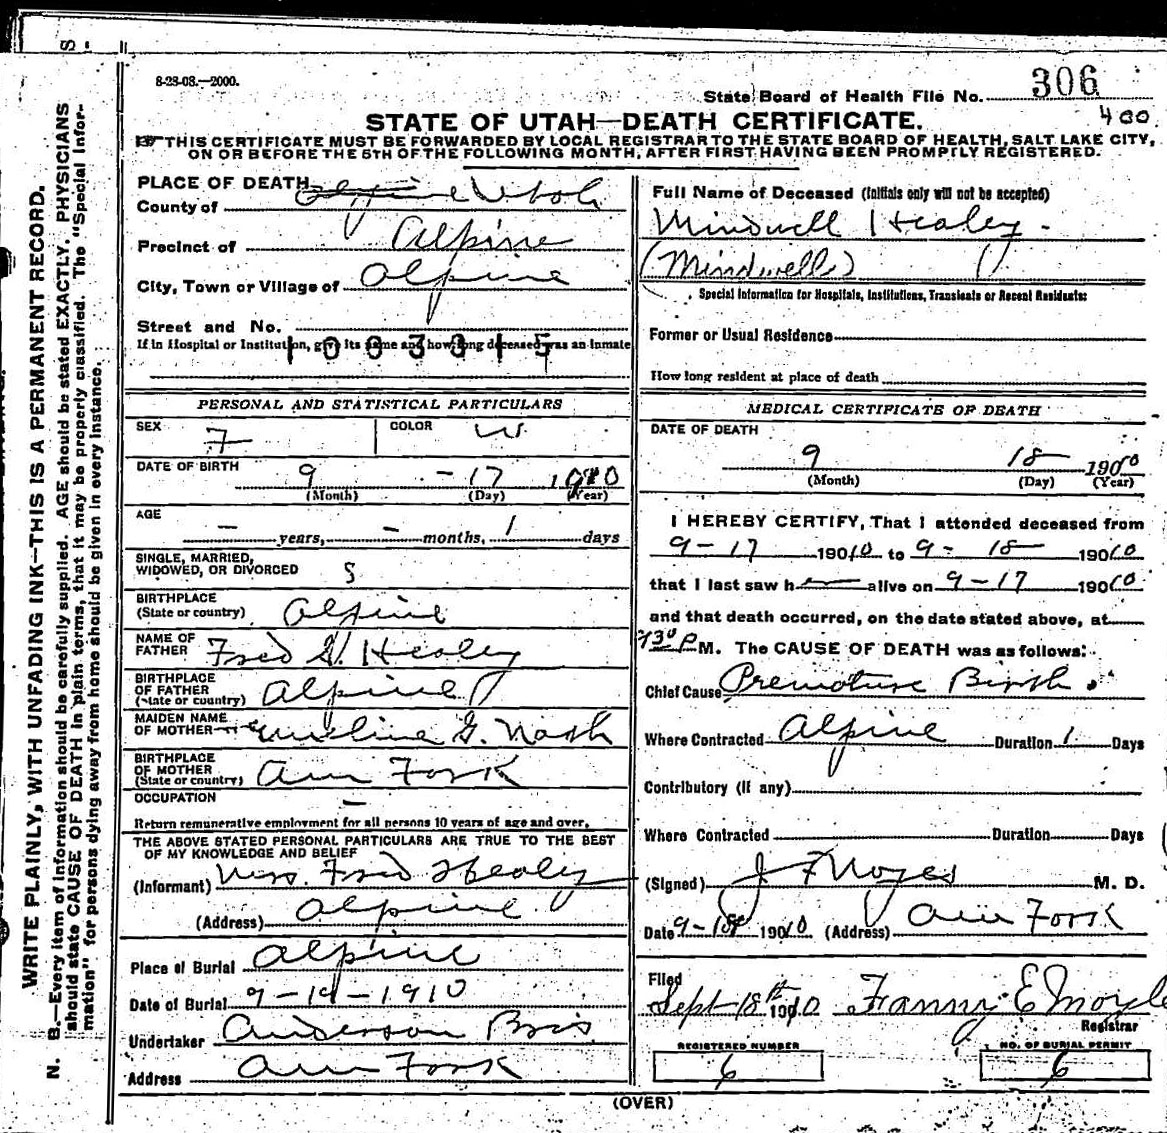 8-28-08.—2000.
State Board of Health File No. 306
400
STATE OF UTAH—DEATH CERTIFICATE.
THIS CERTIFICATE MUST BE FORWARDED BY LOCAL REGISTRAR TO THE STATE BOARD OF HEALTH, SALT LAKE CITY,
ON OR BEFORE THE 5TH OF THE FOLLOWING MONTH, AFTER FIRST HAVING BEEN PROMPTLY REGISTERED.
WRITE PLAINLY, WITH UNFADING INK—THIS IS A PERMANENT RECORD.
N. B.—Every item of information should be carefully supplied. AGE should be stated EXACTLY. PHYSICIANS
should state CAUSE OF DEATH in plain terms, that it may be properly classified. The "Special Infor-
mation" for persons dying away from home should be given in every instance.
PLACE OF DEATH
County of Utah
Precinct of Alpine
City, Town or Village of Alpine
Street and No.
If in Hospital or Institution, give its name and how long deceased was an inmate
1003015
PERSONAL AND STATISTICAL PARTICULARS
SEX F COLOR W
DATE OF BIRTH 9 - 17 1910
(Month) (Day) (Year)
AGE
— years, — months, 1 days
SINGLE, MARRIED,
WIDOWED, OR DIVORCED S
BIRTHPLACE
(State or country) Alpine
NAME OF
FATHER Fred G. Healey
BIRTHPLACE
OF FATHER
(State or country) Alpine
MAIDEN NAME
OF MOTHER Emeline G. Nash
BIRTHPLACE
OF MOTHER
(State or country) Am Fork
OCCUPATION —
Return remunerative employment for all persons 10 years of age and over.
THE ABOVE STATED PERSONAL PARTICULARS ARE TRUE TO THE BEST
OF MY KNOWLEDGE AND BELIEF
(Informant) Mrs. Fred Healey
(Address) Alpine
Place of Burial Alpine
Date of Burial 9-19-1910
Undertaker Anderson Bros
Address Am Fork
Full Name of Deceased (Initials only will not be accepted)
Mindwell Healey
(Mindwell)
Special Information for Hospitals, Institutions, Transients or Recent Residents:
Former or Usual Residence
How long resident at place of death
MEDICAL CERTIFICATE OF DEATH
DATE OF DEATH
9 18 1910
(Month) (Day) (Year)
I HEREBY CERTIFY, That I attended deceased from
9-17 1910 to 9-18 1910
that I last saw h— alive on 9-17 1910
and that death occurred, on the date stated above, at
730 P M. The CAUSE OF DEATH was as follows:
Chief Cause Premature Birth.
Where Contracted Alpine Duration 1 Days
Contributory (if any)
Where Contracted Duration Days
(Signed) J F Noyes M. D.
Date 9-18 1910 (Address) Am Fork
Filed
Sept 18th 1910 Fanny E Moyle
Registrar
REGISTERED NUMBER
6
NO. OF BURIAL PERMIT
6
(OVER)